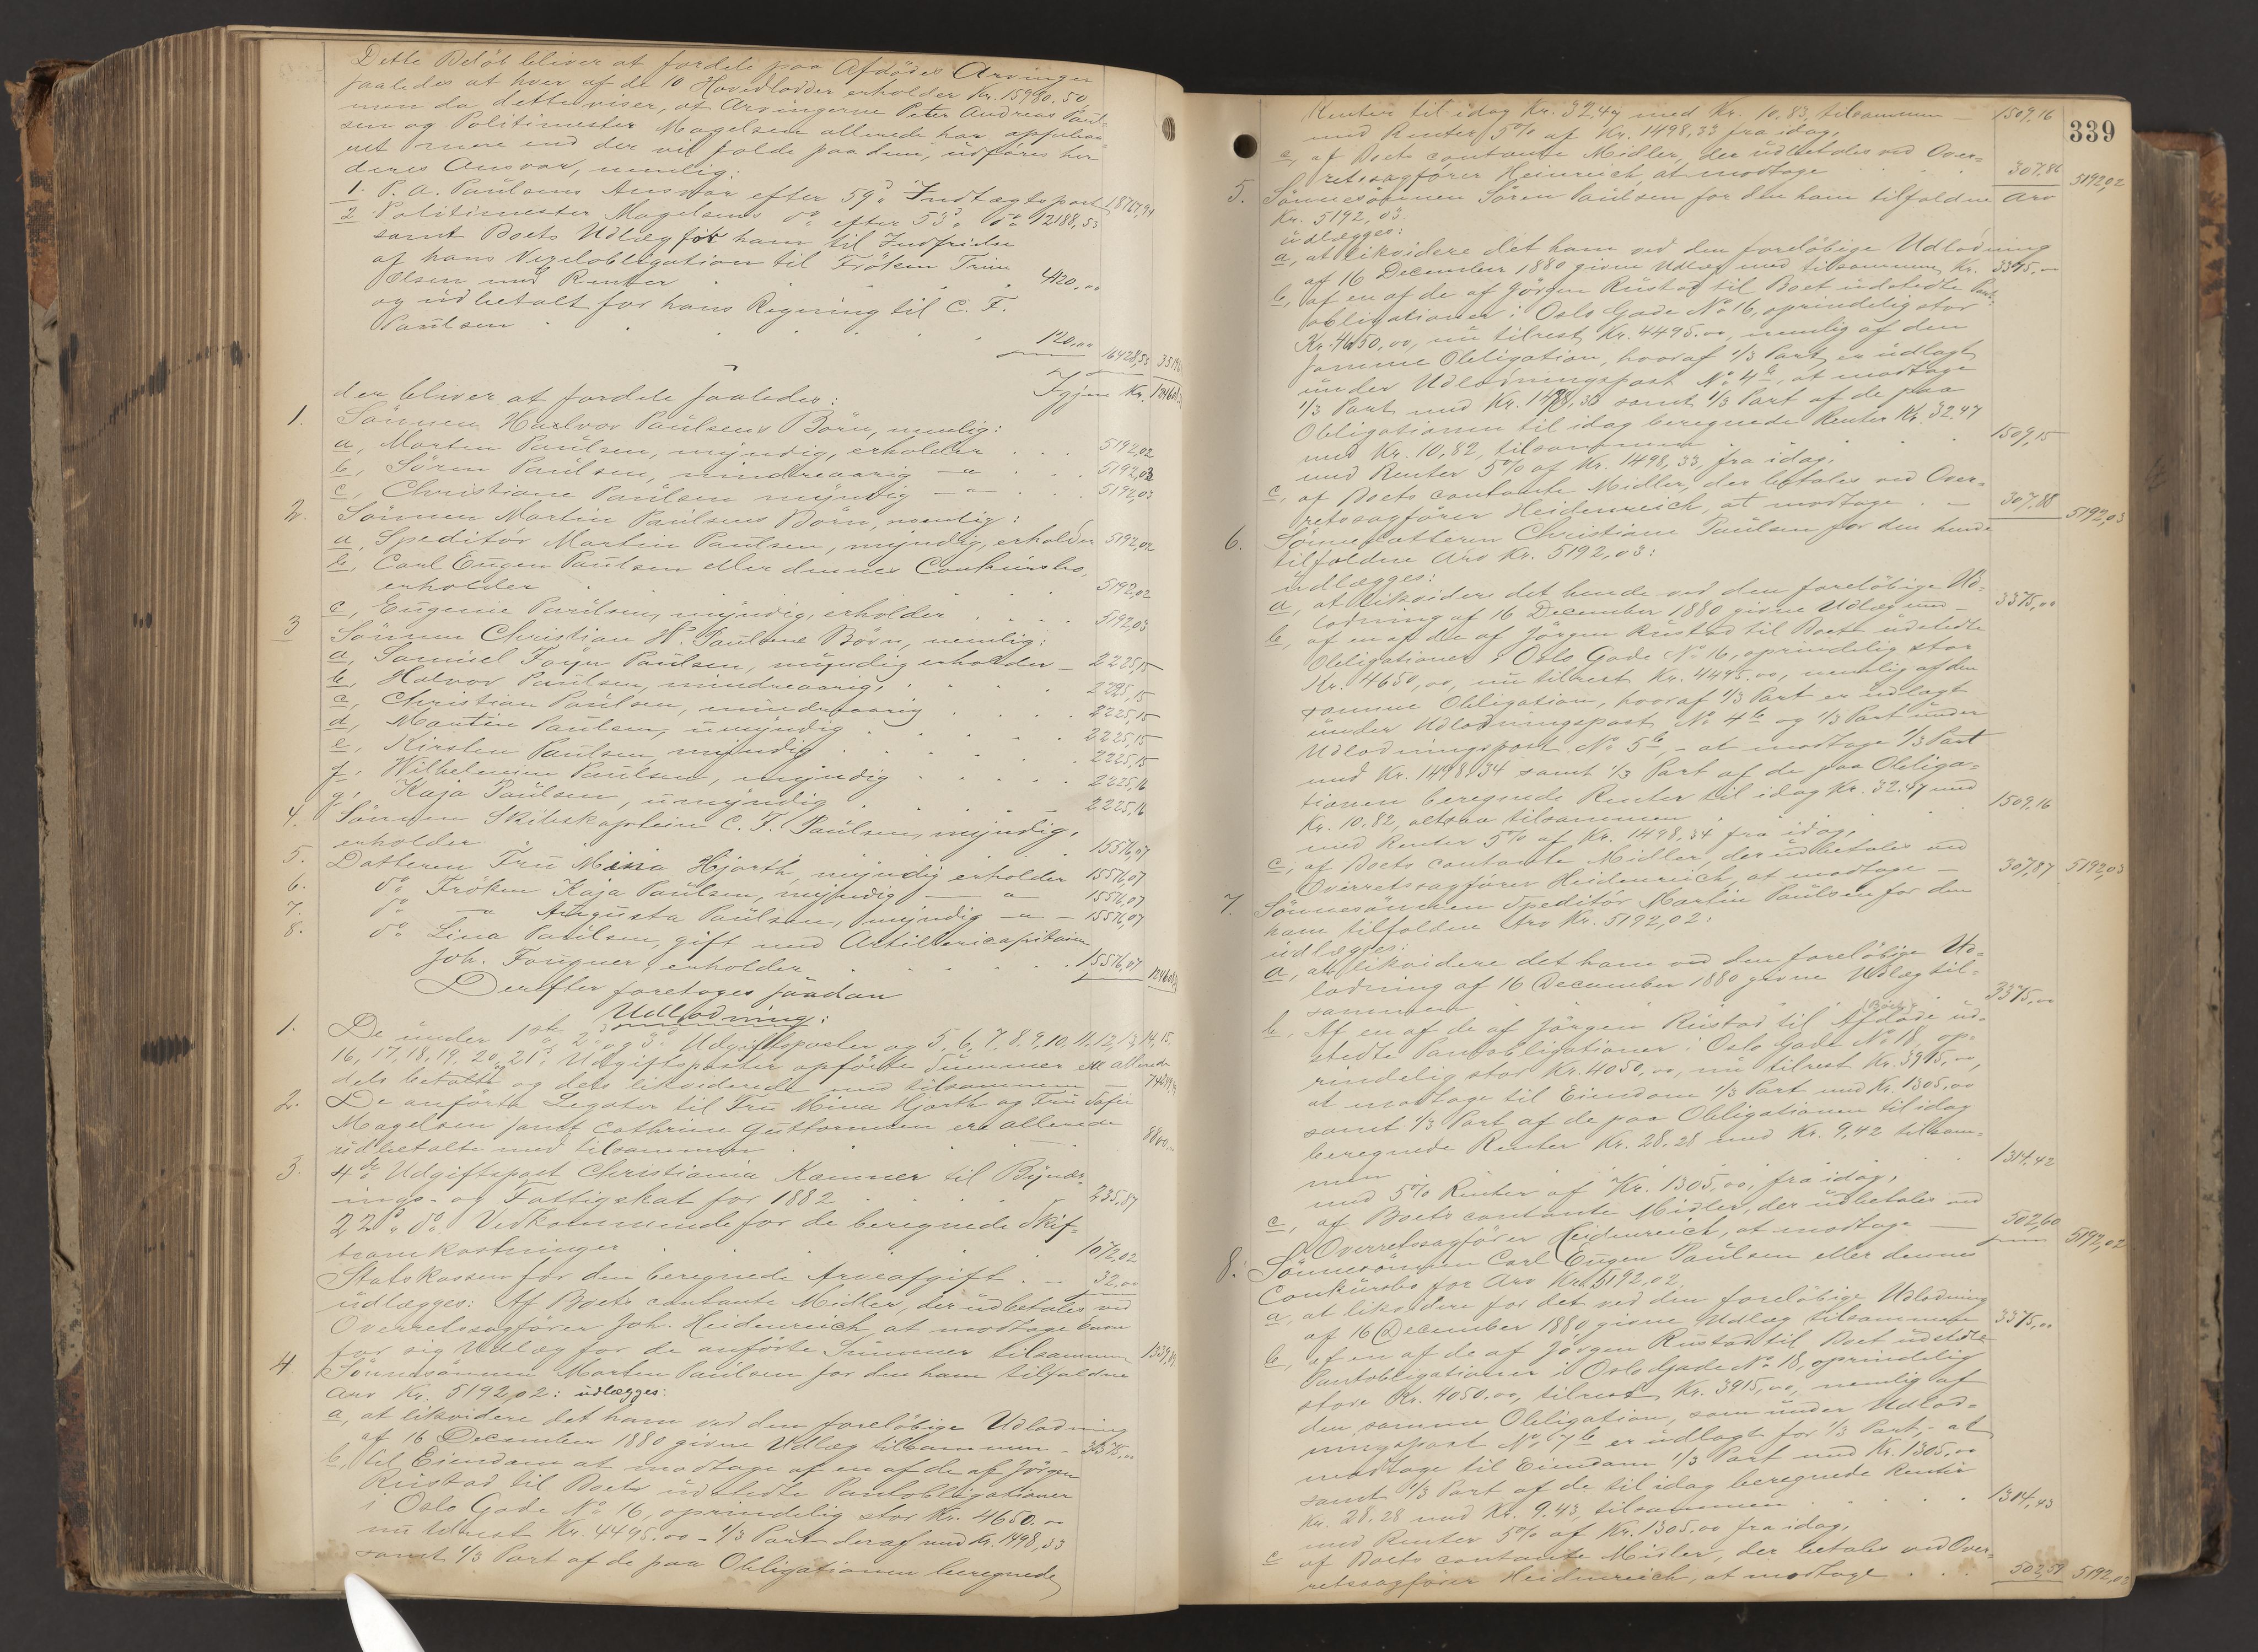 Dette Beløb bliver at fordele paa Afdødes Arvinger
saaledes at hver af de 10 Hovedlodder erholder Kr. 15980.50,
men da dette viser, at Arvingerne Peter Andreas Paul=
sen og Politimester Magelsen allerede har
mere end der vil falde paa dem, udføres her
deres Ansvar, nemlig:
1. P. A. Paulsens Ansvar efter 59d Indtægtspost 18767,94
2 Politimester Magelsens do efter 53d do 12188,53
samt Boets Udlæg for ham til Indfrielse
af hans Vexelobligation til Frøken Trine
Olsen med Renter 4120,00
og udbetalt for hans Regning til C. F.
Paulsen 120,00 16428,53
Igjen Kr.
der bliver at fordele saaledes:
1. Sønnen Halvor Paulsens Børn, nemlig:
a, Morten Paulsen, myndig, erholder 5192,02
b, Søren Paulsen, mindreaarig —"— 5192,03
c, Christiane Paulsen myndig —"— 5192,03
2. Sønnen Martin Paulsens Børn, nemlig:
a, Speditør Martin Paulsen, myndig, erholder 5192,02
b, Carl Eugen Paulsen eller dennes Conkursbo,
erholder 5192,02
c, Eugenie Paulsen, myndig, erholder 5192,03
3 Sønnen Christian H. Paulsens Børn, nemlig:
a, Samuel Foyn Paulsen, myndig erholder — 2225,15
b, Halvor Paulsen, mindreaarig, 2225,15
c, Christian Paulsen, mindreaarig 2225,15
d, Martin Paulsen, umyndig 2225,15
e, Kirsten Paulsen, myndig 2225,15
f, Wilhelmine Paulsen, myndig 2225,16
g, Kaja Paulsen, umyndig 2225,16
4. Sønnen Skibskaptein C. F. Paulsen, myndig,
erholder 15576,07
5. Datteren Fru Mina Hjorth, myndig erholder 15576,07
6. do Frøken Kaja Paulsen, myndig —"— 15576,07
7. do —"— Augusta Paulsen, myndig —"— 15576,07
8. do Lina Paulsen, gift med Artillericapitain
Joh. Fougner, erholder 15576,07
Derefter foretoges saadan
Udlodning:
1. De under 1ste, 2d og 3d Udgiftsposter og 5, 6, 7, 8, 9, 10, 11, 12, 13, 14, 15,
16, 17, 18, 19, 20 og 21d Udgiftsposter opførte Summer ere allerede
dels betalte og dels likviderede med tilsammen
2. De anførte Legater til Fru Mina Hjorth og Fru Sofie
Magelsen samt Cathrine Guttormsen ere allerede
udbetalte med tilsammen 8800,
3. 4de Udgiftspost Christiania Kæmner til Bynær=
ings- og Fattigskat for 1882 235.87
22d do Vedkommende for de beregnede Skif=
teomkostninger 1072,02
Statskassen for den beregnede Arveafgift 32,00
udlægges: Af Boets contante Midler, der udbetales ved
Overretssagfører Joh. Heidenreich at modtage Enhver
for sig Udlæg for de anførte Summer tilsammen 1339,89
4. Sønnesønnen Morten Paulsen for den ham tilfaldne
Arv Kr. 5192,02: udlægges:
a, at likvidere det ham ved den foreløbige Udlodning
af 16 December 1880 givne Udlæg tilsammen — 3375,00
b, til Eiendom at modtage af en af de af Jørgen
Rustad til Boet udstedte Pantobligationer
i Oslo Gade No 16, oprindelig stor Kr. 4650.00
nu tilrest Kr. 4495.00 – 1/3 Part deraf med Kr. 1498,33
samt 1/3 Part af de paa Obligationen beregnede
339
Renter til idag Kr. 32.47 med Kr. 10.83, tilsammen 1509.16
med Renter 5% af Kr. 1498,33 fra idag,
c, af Boets contante Midler, der udbetales ved Over=
retssagfører Heinreich, at modtage 307,86 5192,02
5. Sønnesønnen Søren Paulsen for den ham tilfaldne Arv
Kr. 5192,03
udlægges:
a, at likvidere det ham ved den foreløbige Udlodning
af 16 December 1880 givne Udlæg med tilsammen Kr. 3375,—
b, af en af de af Jørgen Rustad til Boet udstedte Pant=
obligationer i Oslo Gade No 16, oprindelig stor
Kr. 4650,00, nu tilrest Kr. 4495.00, nemlig af den
samme Obligation, hvoraf 1/3 Part er udlagt
under Udlodningspost No 4b, at modtage
1/3 Part med Kr. 1498,33 samt 1/3 Part af de paa
Obligationen til idag beregnede Renter Kr. 32.47
med Kr. 10,82, tilsammen 1509,15
med Renter 5% af Kr. 1498,33, fra idag,
c, af Boets contante Midler, der betales ved Over=
retssagfører Heidenreich, at modtage 307,88 5192,03
6. Sønnedatteren Christiane Paulsen for den hende
tilfaldne Arv Kr. 5192,03:
udlægges:
a, at likvidere det hende ved den foreløbige Ud=
lodning af 16 December 1880 givne Udlæg med — 3375,00
b, af en af de af Jörgen Rustad til Boet udstedte
Obligationer i Oslo Gade No 16, oprindelig stor
Kr. 4650,00, nu tilrest Kr. 4495.00, nemlig af den
samme Obligation, hvoraf 1/3 Part er udlagt
under Udlodningspost No 4b og 1/3 Part under
Udlodningspost No 5b, – at modtage 1/3 Part
med Kr. 1498.34 samt 1/3 Part af de paa Obliga=
tionen beregnede Renter til idag Kr. 32.47 med
Kr. 10.82, altsaa tilsammen 1509.16
med Renter 5% af Kr. 1498,34 fra idag,
c, af Boets contante Midler, der udbetales ved
Overretssagfører Heidenreich, at modtage — 307,87 5192,03
7. Sønnesønnen Speditør Martin Paulsen for den
ham tilfaldne Arv Kr. 5192,02:
udlægges:
a, at likvidere det ham ved den foreløbige Ud=
lodning af 16 December 1880 givne Udlæg til=
sammen 3375,00
b, Af en af de af Jørgen Rustad til Afdøde ud=
stedte Pantobligationer i Oslo Gade No 18, op=
rindelig stor Kr. 4050,00, nu tilrest Kr. 3915,00,
at modtage til Eiendom 1/3 Part med Kr. 1305,00
samt 1/3 Part af de paa Obligationen til idag
beregnede Renter Kr. 28,28 med Kr. 9,42 tilsam=
men 1314,42
med 5% Renter af Kr. 1305,00, fra idag,
c, af Boets contante Midler, der udbetales ved
Overretssagfører Heidenreich, at modtage — 502,60 5192,02
8. Sønnesønnen Carl Eugen Paulsen eller dennes
Conkursbo for Arv Kr. 5192,02.
a, at likvidere for det ved den foreløbige Udlodning
af 16 December 1880 givne Udlæg tilsammen 3375,00
b, af en af de af Jørgen Rustad til Boet udstedte
Pantobligationer i Oslo Gade No 18, oprindelig
store Kr. 4050.00, tilrest Kr. 3915,00, nemlig af
den samme Obligation, som under Udlod=
ningspost No 7b er udlagt for 1/3 Part, – at
modtage til Eiendom 1/3 Part med Kr. 1305,00
samt 1/3 Part af de til idag beregnede Renter
Kr. 28.28 med Kr. 9.43, tilsammen 1314,43
med Renter 5% af Kr. 1305.00 fra idag,
c af Boets contante Midler, der betales ved Over=
retssagfører Heidenreich, at modtage 502,59 5192,02